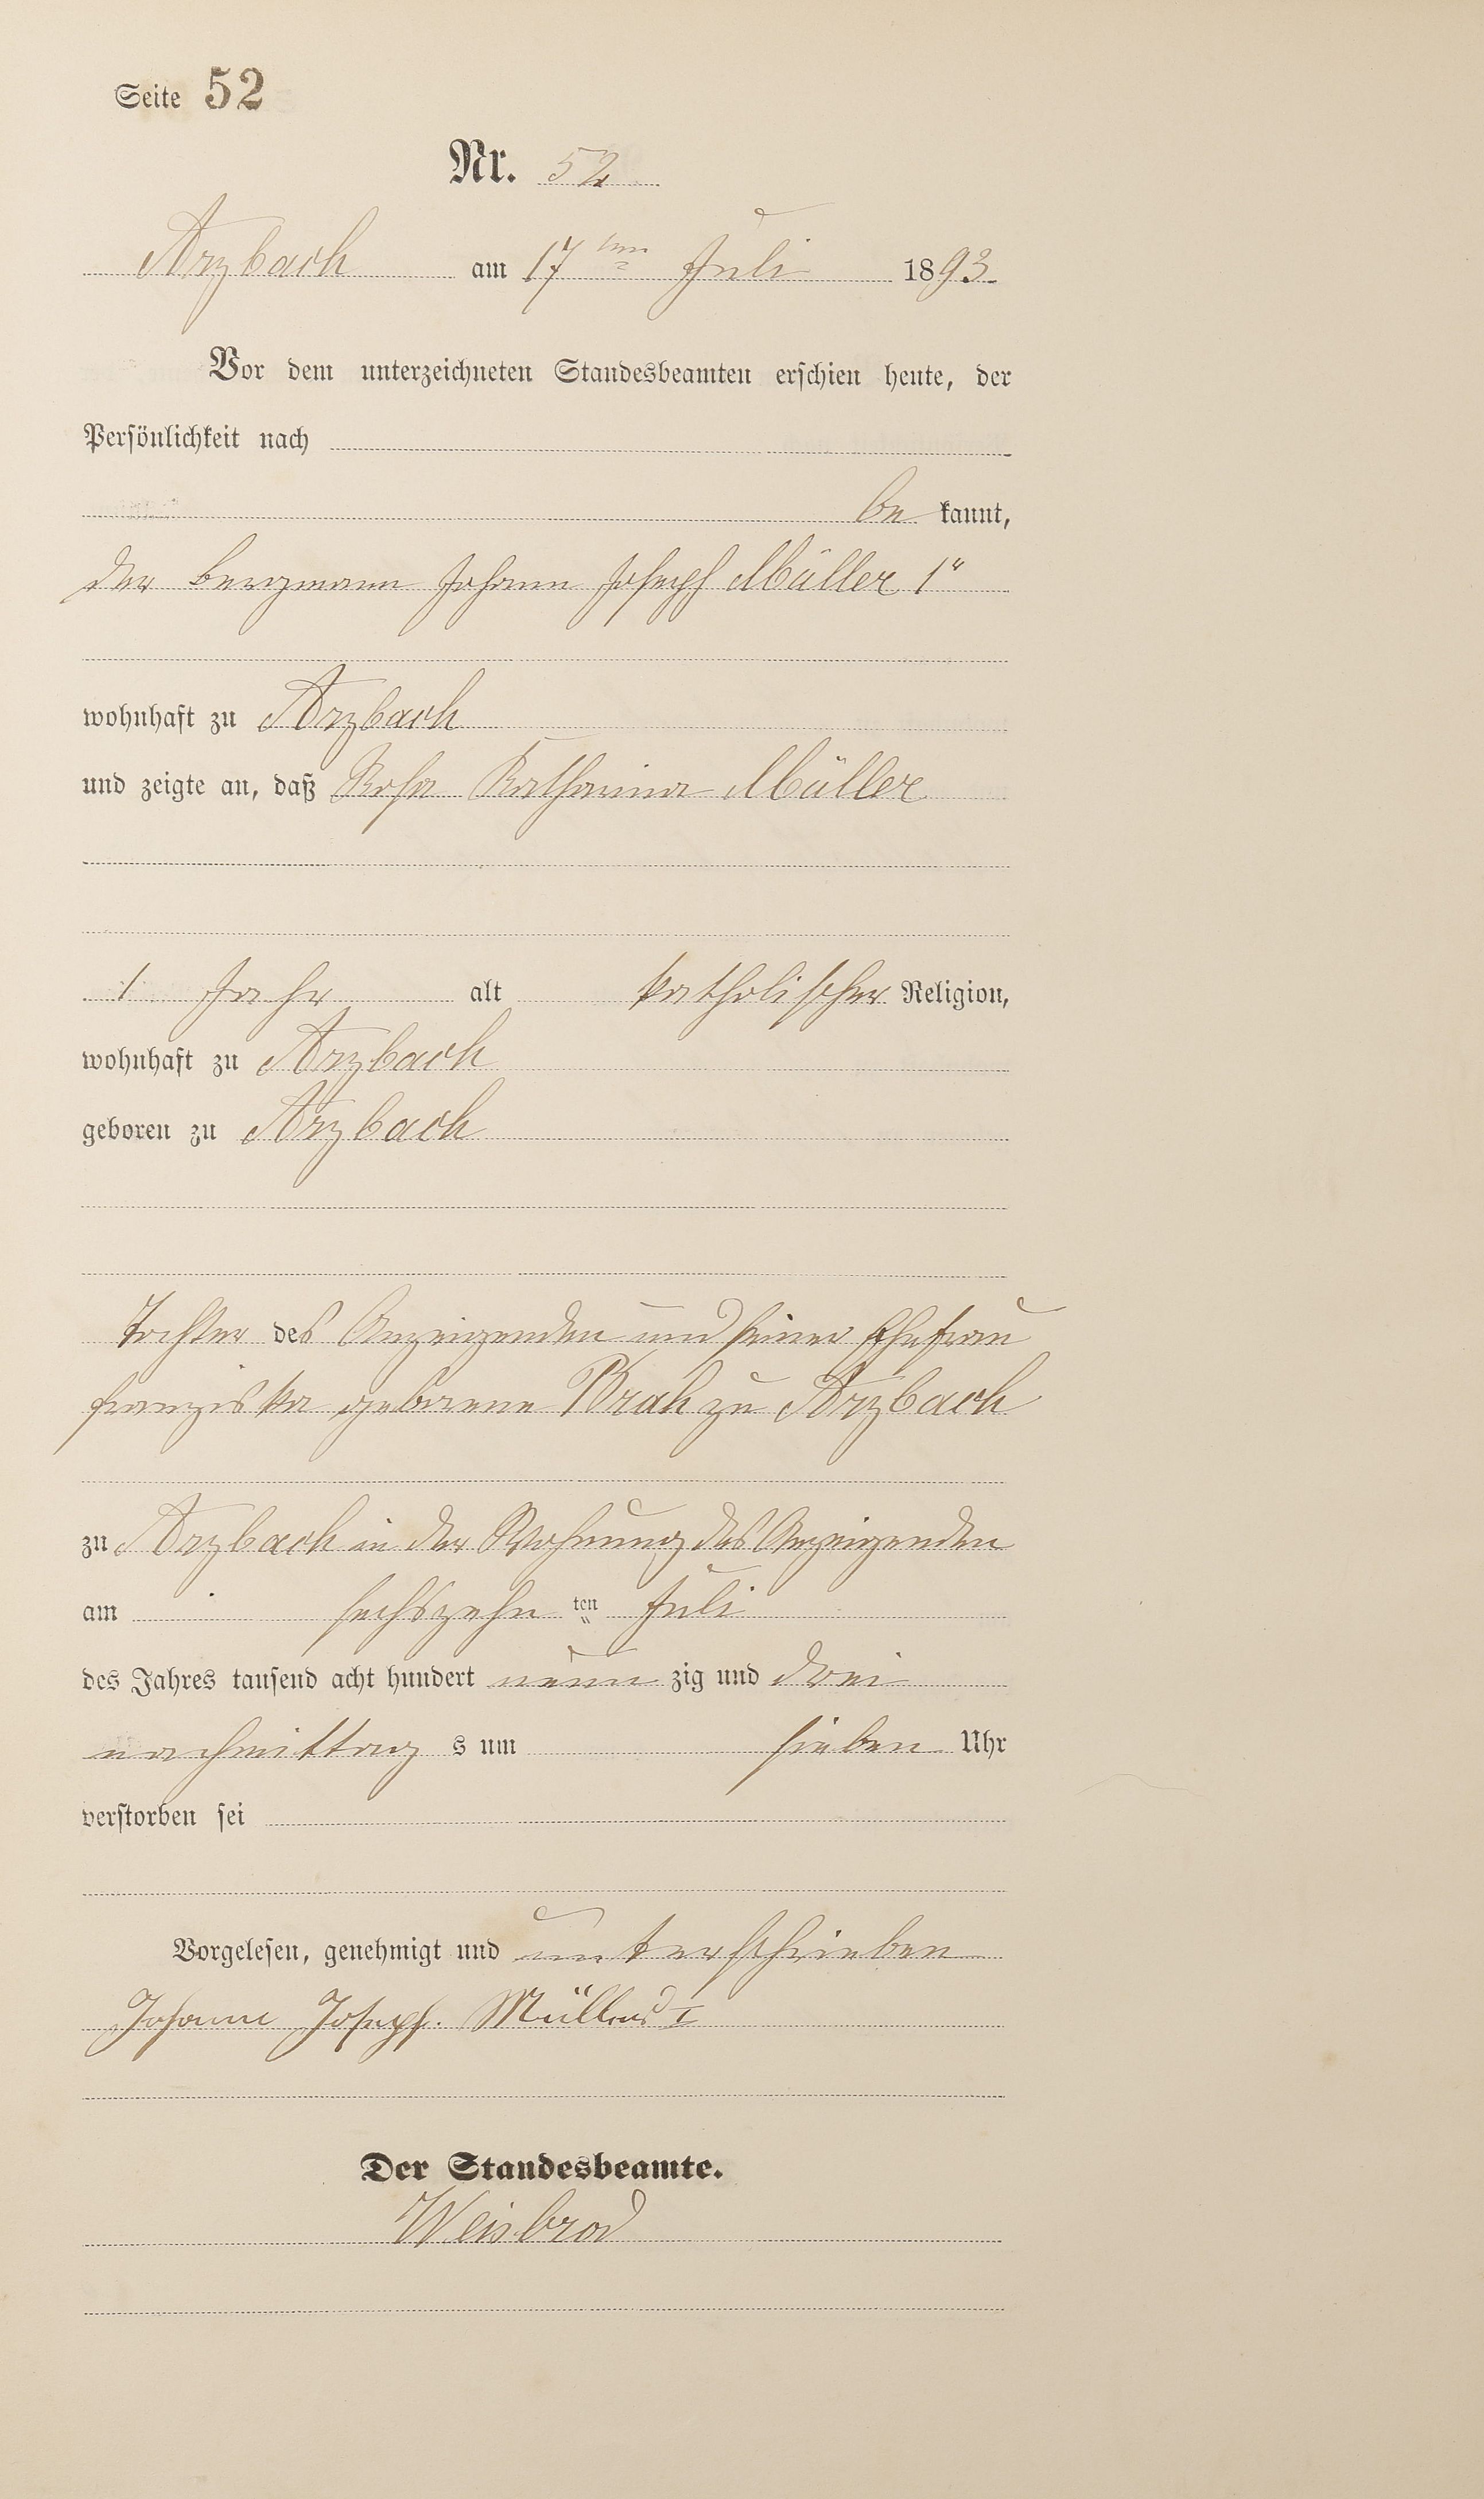 Seite 52
Nr. 52
Arzbach am 17ten Juli 1893.
Vor dem unterzeichneten Standesbeamten erschien heute, der
Persönlichkeit nach
be kannt,
der Bergmann Johann Joseph Müller 1"
wohnhaft zu Arzbach
und zeigte an, daß Rosa Katharina Müller
1 Jahr alt katholischer Religion,
wohnhaft zu Arzbach
geboren zu Arzbach
Tochter des Anzeigenden und seiner Ehefrau
Franziska geborene Brah zu Arzbach
zu Arzbach in der Wohnung des Anzeigenden
am sechszehn ten Juli
des Jahres tausend acht hundert neun zig und drei
nachmittag s um sieben Uhr
verstorben sei
Vorgelesen, genehmigt und unterschrieben
Johann Joseph. Müller I
Der Standesbeamte.
Weisbrod